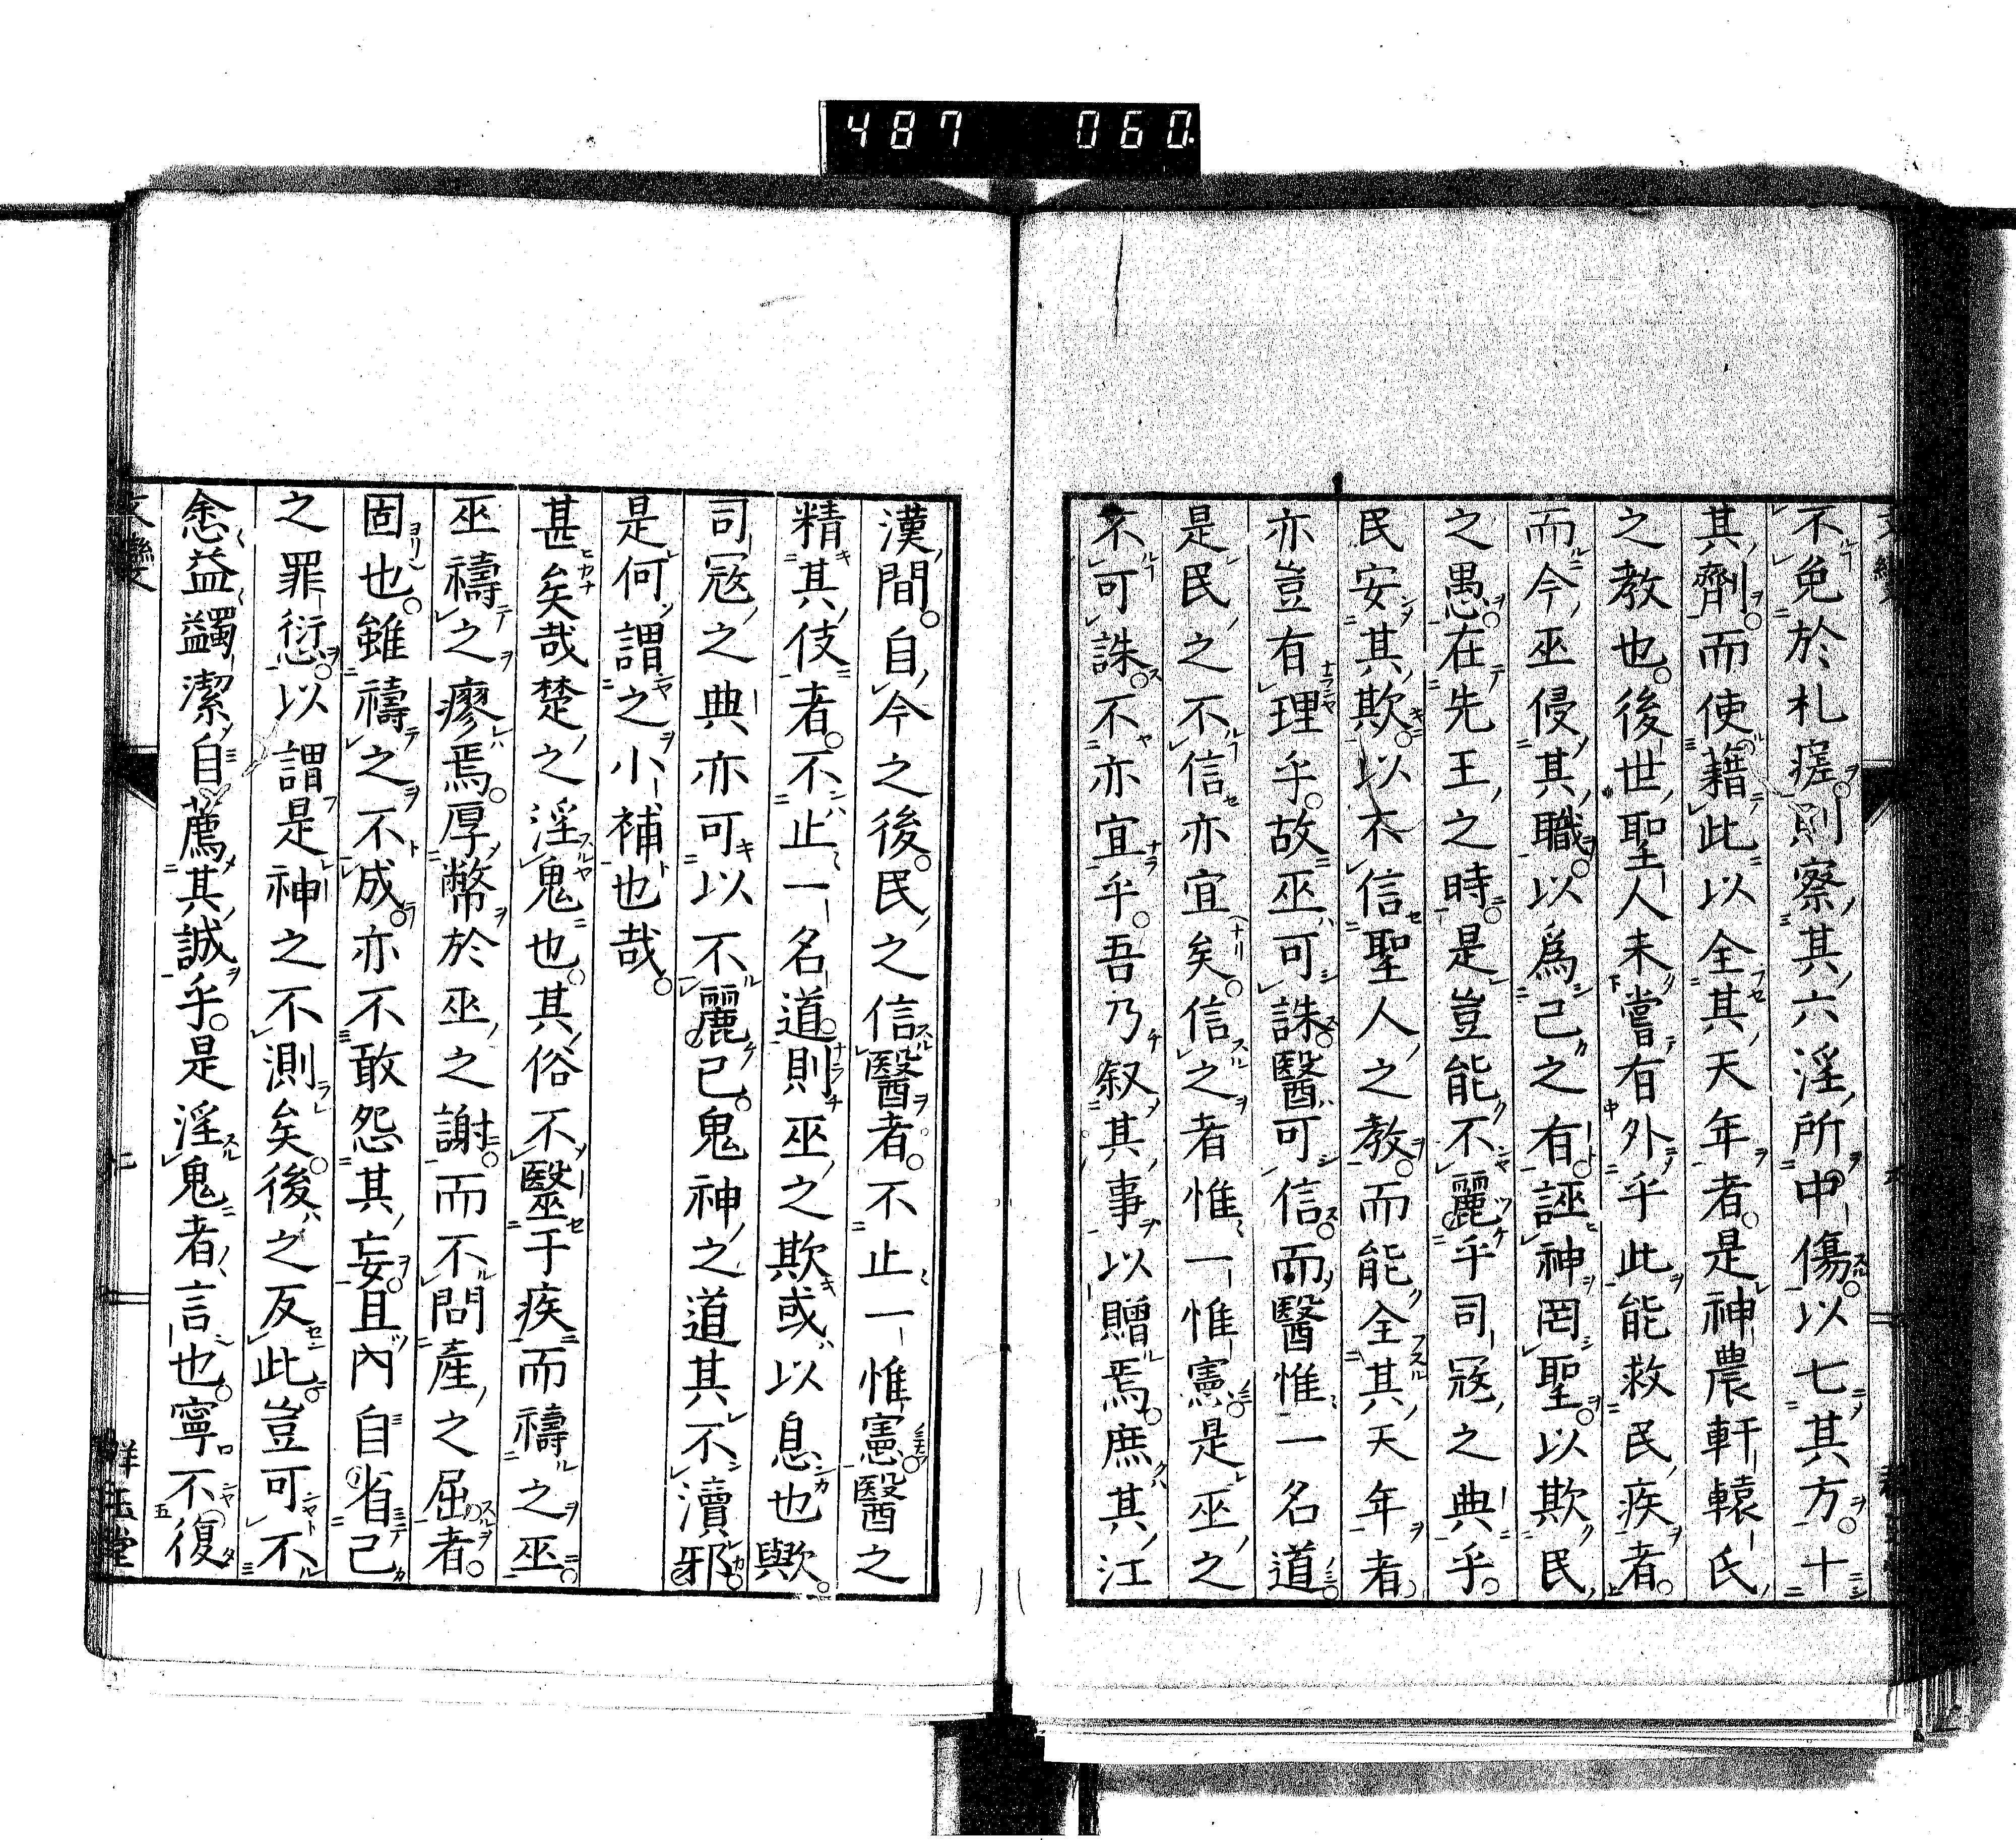 487 060
不免於札瘥則察其六淫所中傷以七其方十
其劑而使藉此以全其天年者是神農軒轅氏
之教也後世聖人未嘗有外乎此能救民疾者
而今巫侵其職以爲己之有誣神罔聖以欺民
之愚在先王之時是豈能不麗乎司寇之典乎
民安其欺以不信聖人之教而能全其天年者
亦豈有理乎故巫可誅醫可信而醫惟一名道
是民之不信亦宜矣信之者惟一惟憲是巫之
不可誅不亦宜乎吾乃叙其事以贈焉庶其江
漢間自今之後民之信醫者不止一惟憲醫之
精其伎者不止一名道則巫之欺或以息也歟
司寇之典亦可以不麗已鬼神之道其不瀆邪
是何謂之小補也哉
甚矣哉楚之淫鬼也其俗不毉于疾而禱之巫
巫禱之瘳焉厚幣於巫之謝而不問產之屈者
固也雖禱之不成亦不敢怨其妄且內自省己
之罪衍愆以謂是神之不測矣後之反此豈可不
悆益蠲潔自薦其誠乎是淫鬼者言也寧不復